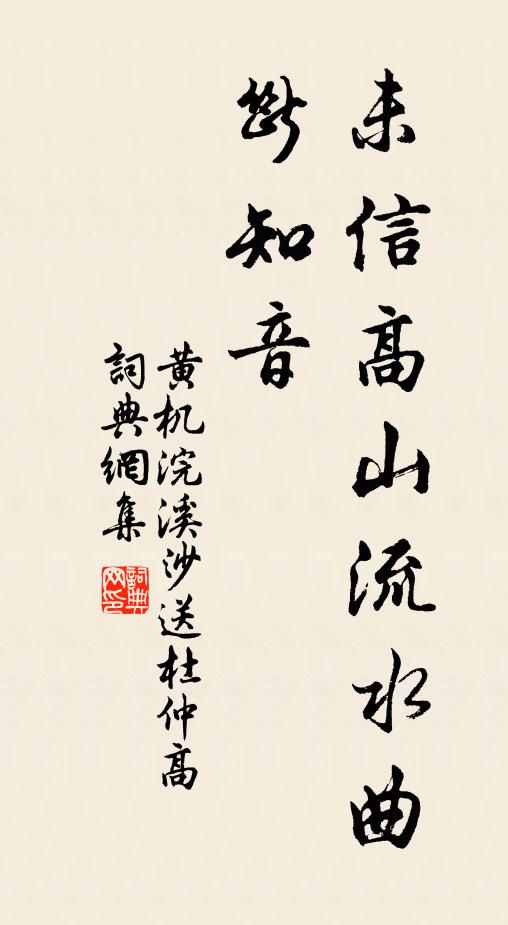 未信高山流水曲
斷知音
黄机浣溪沙送杜仲高
詞典網集
詞典
网印